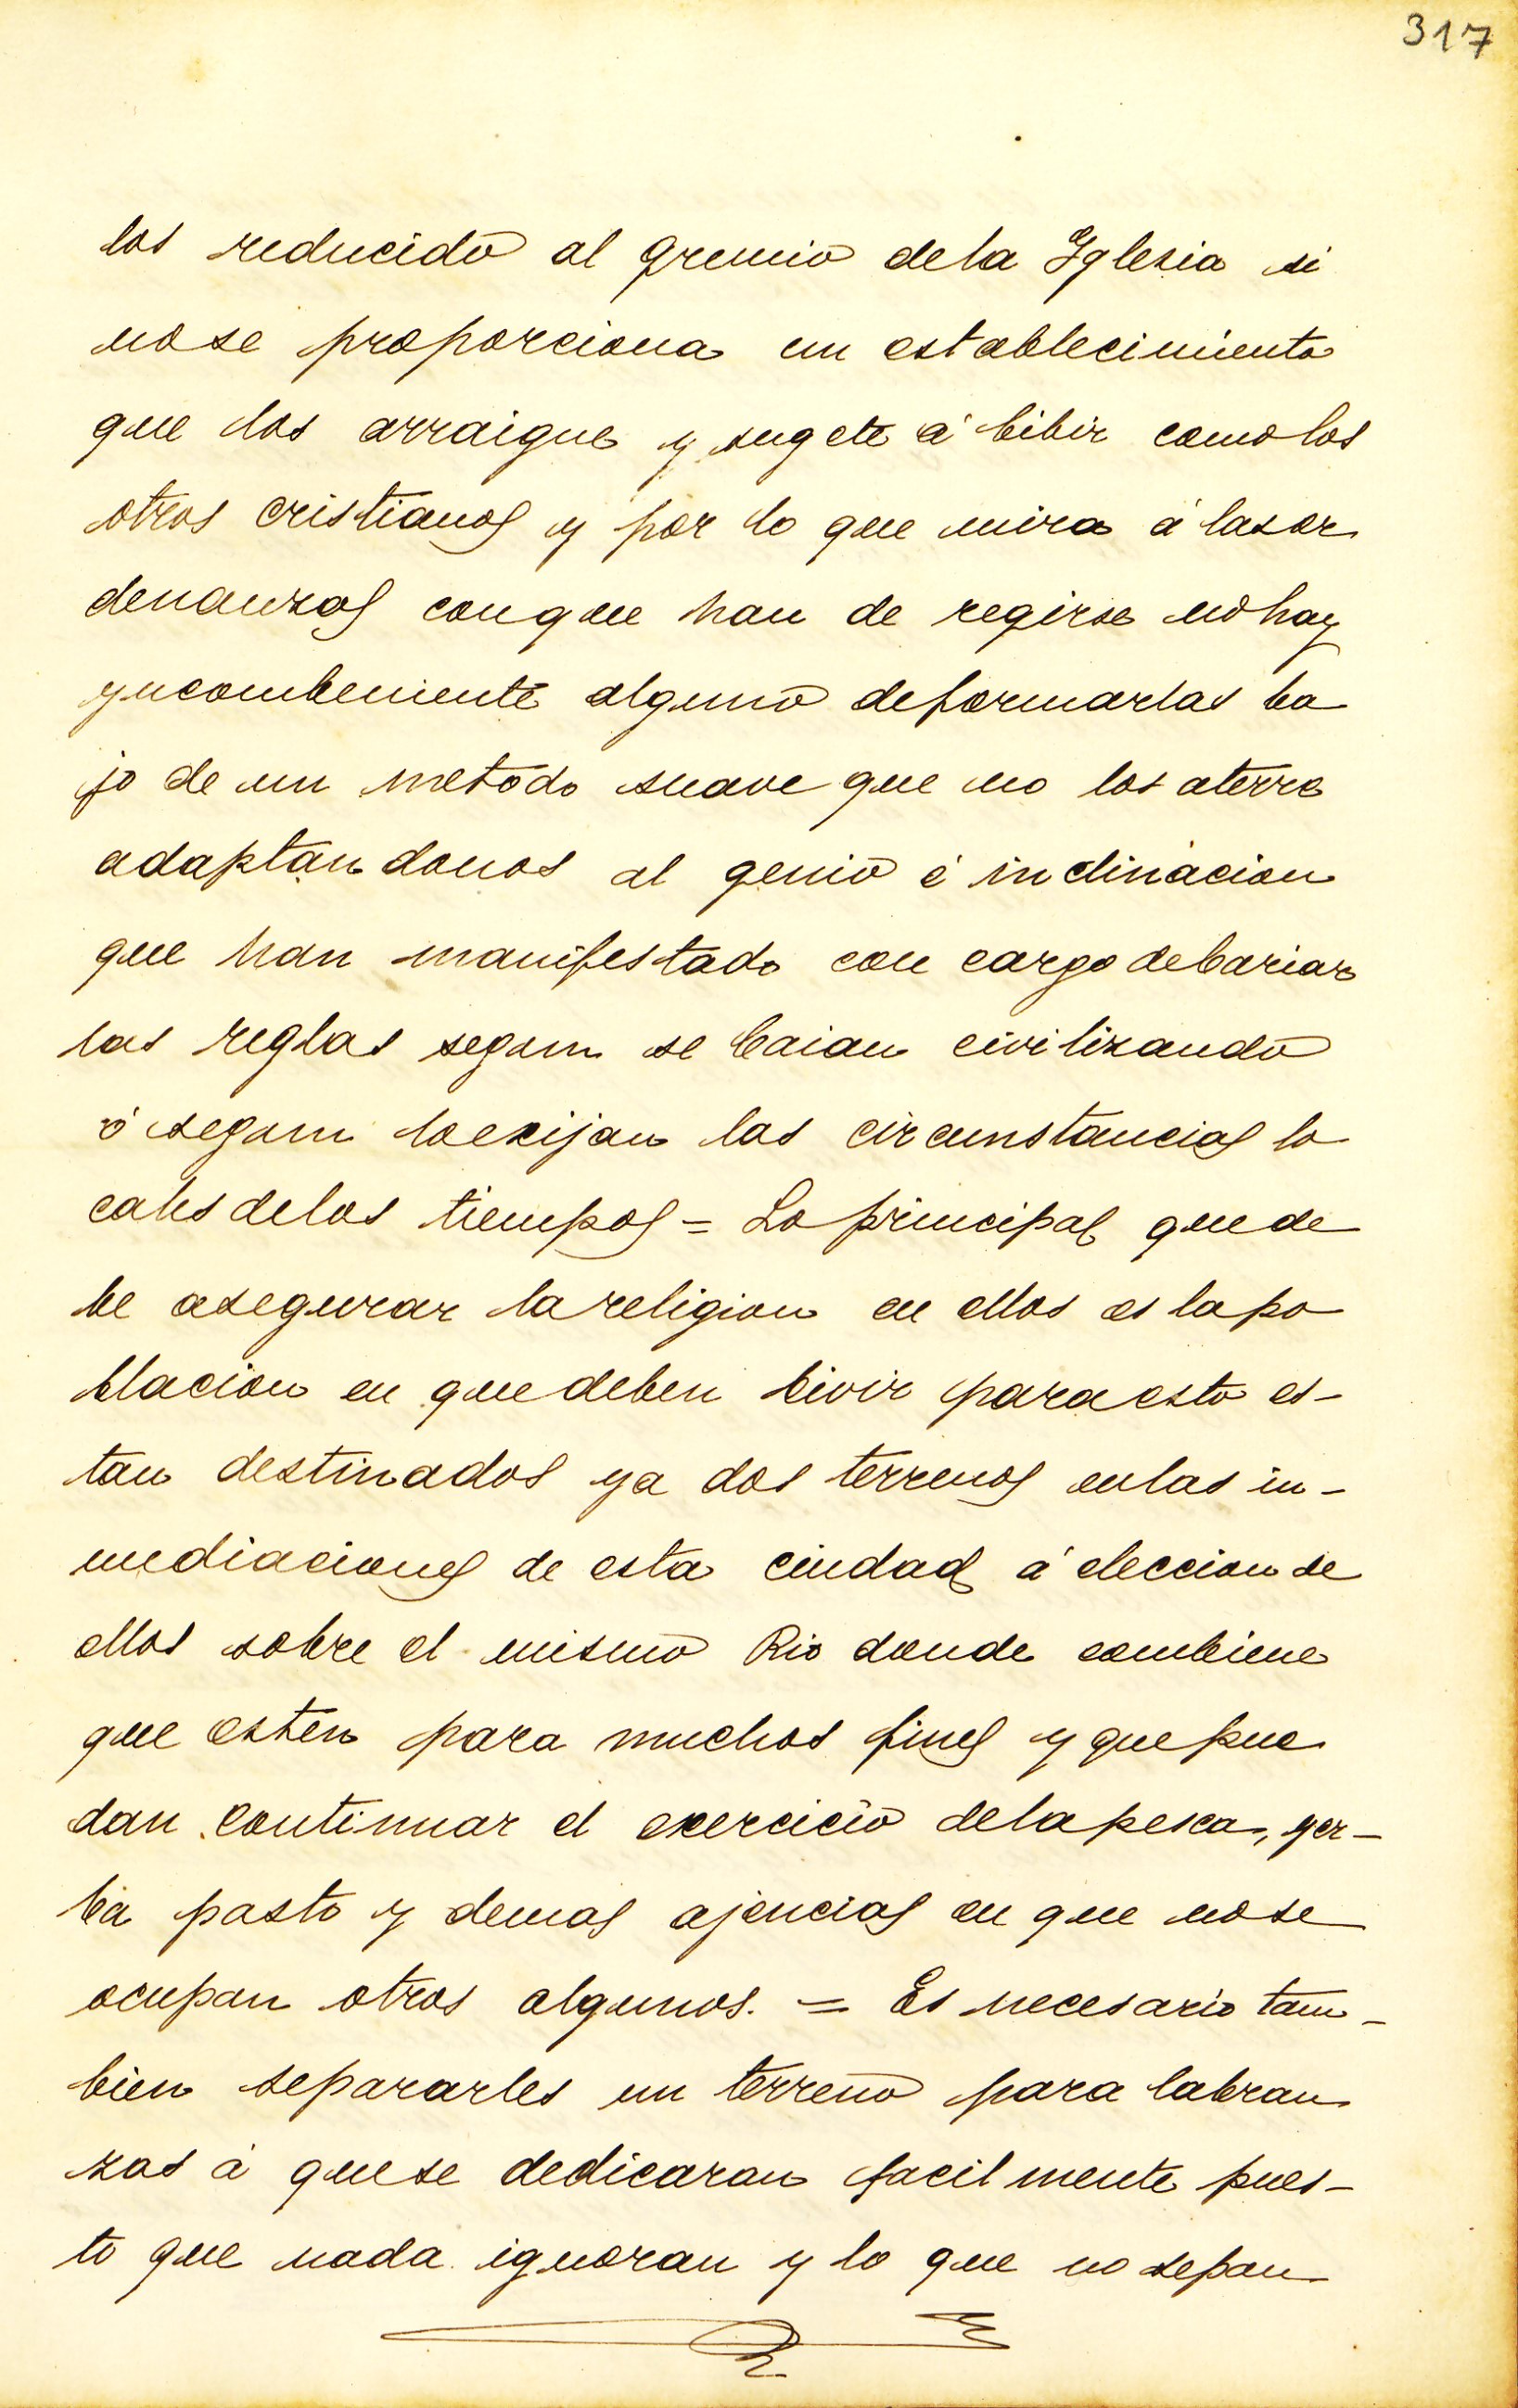 317
los reducido al gremio dela Yglesia si
nose proporciona un establecimiento
que los arraigue y sugete á bibir como los
otros cristianos y por lo que mira á lasor
denanzas conque han de regirse no hay
yncombeniente alguno deformarlas ba
jo de un metodo suave que no los aterre
adaptan donos al genio é inclinacion
que han manifestado con cargo debariar
las reglas segun se baian civilizando
ó segun loexijan las circunstancias lo
cales delos tiempos = Lo principal quede
be asegurar lareligion en ellos es lapo
blacion en que deben bivir paraesto es-
tan destinados ya dos terrenos enlas in-
mediaciones de esta ciudad á eleccion de
ellos sobre el mismo Rio donde combiene
que esten para muchos fines y que pue
dan continuar el exercicio delapesca, yer-
ba pasto y demas ajencias en que nose
ocupan otros algunos. = Es necesario tam-
bien separarles un terreno para labran
zas á quese dedicaran facil mente pues-
to que nada ignoran y lo que no sepan